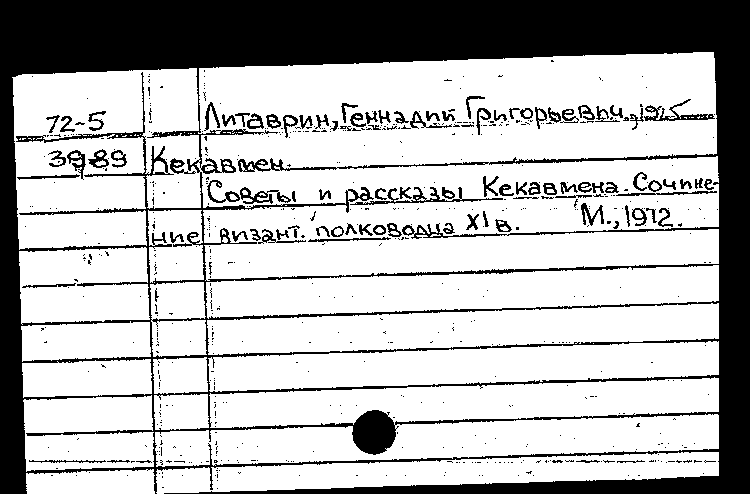 72-5 Литаврин, Геннадий Григорьевич, 1925
3989 Кекавмен.
Советы и рассказы Кекавмена. Сочине-
ние визант. полководца XI в. М., 1972.